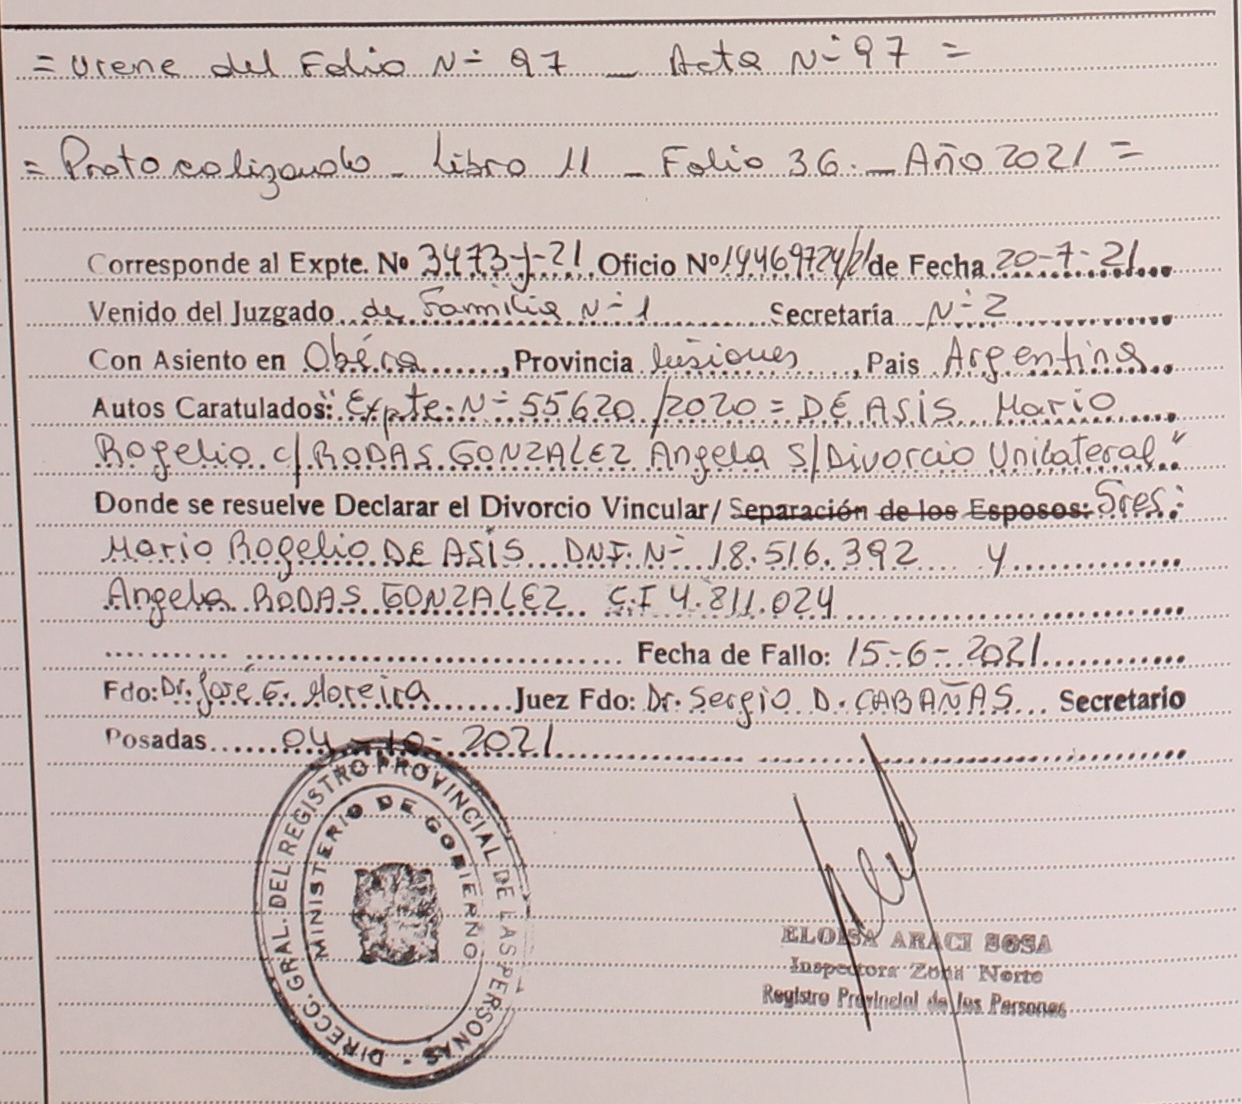 = Viene del Folio Nº 97 _ Acta Nº 97 =
= Protocolizando _ Libro 11 _ Folio 36. _ Año 2021 =
Corresponde al Expte. Nº 3473-J-21 Oficio Nº 14469724/21 de Fecha 20-7-21
Venido del Juzgado de Familia Nº 1 Secretaría Nº 2
Con Asiento en Oberá, Provincia Misiones, Pais Argentina
Autos Caratulados: "Expte. Nº 55620/2020 = DE ASIS Mario
Rogelio c/ RODAS GONZALEZ Angela S/ Divorcio Unilateral"
Donde se resuelve Declarar el Divorcio Vincular/ Separación de los Esposos: Sres:
Mario Rogelio DE ASÍS DNI. Nº 18.516.392 y
Angela RODAS GONZALEZ C.I 4.811.024
Fecha de Fallo: 15-6-2021
Fdo: Dr. José G. Moreira Juez Fdo: Dr. Sergio D. CABAÑAS Secretario
Posadas 04-10-2021
DIRECC. GRAL. DEL REGISTRO PROVINCIAL DE LAS PERSONAS -
MINISTERIO DE GOBIERNO
ELOISA ARACI SOSA
Inspectora Zona Norte
Registro Provincial de las Personas